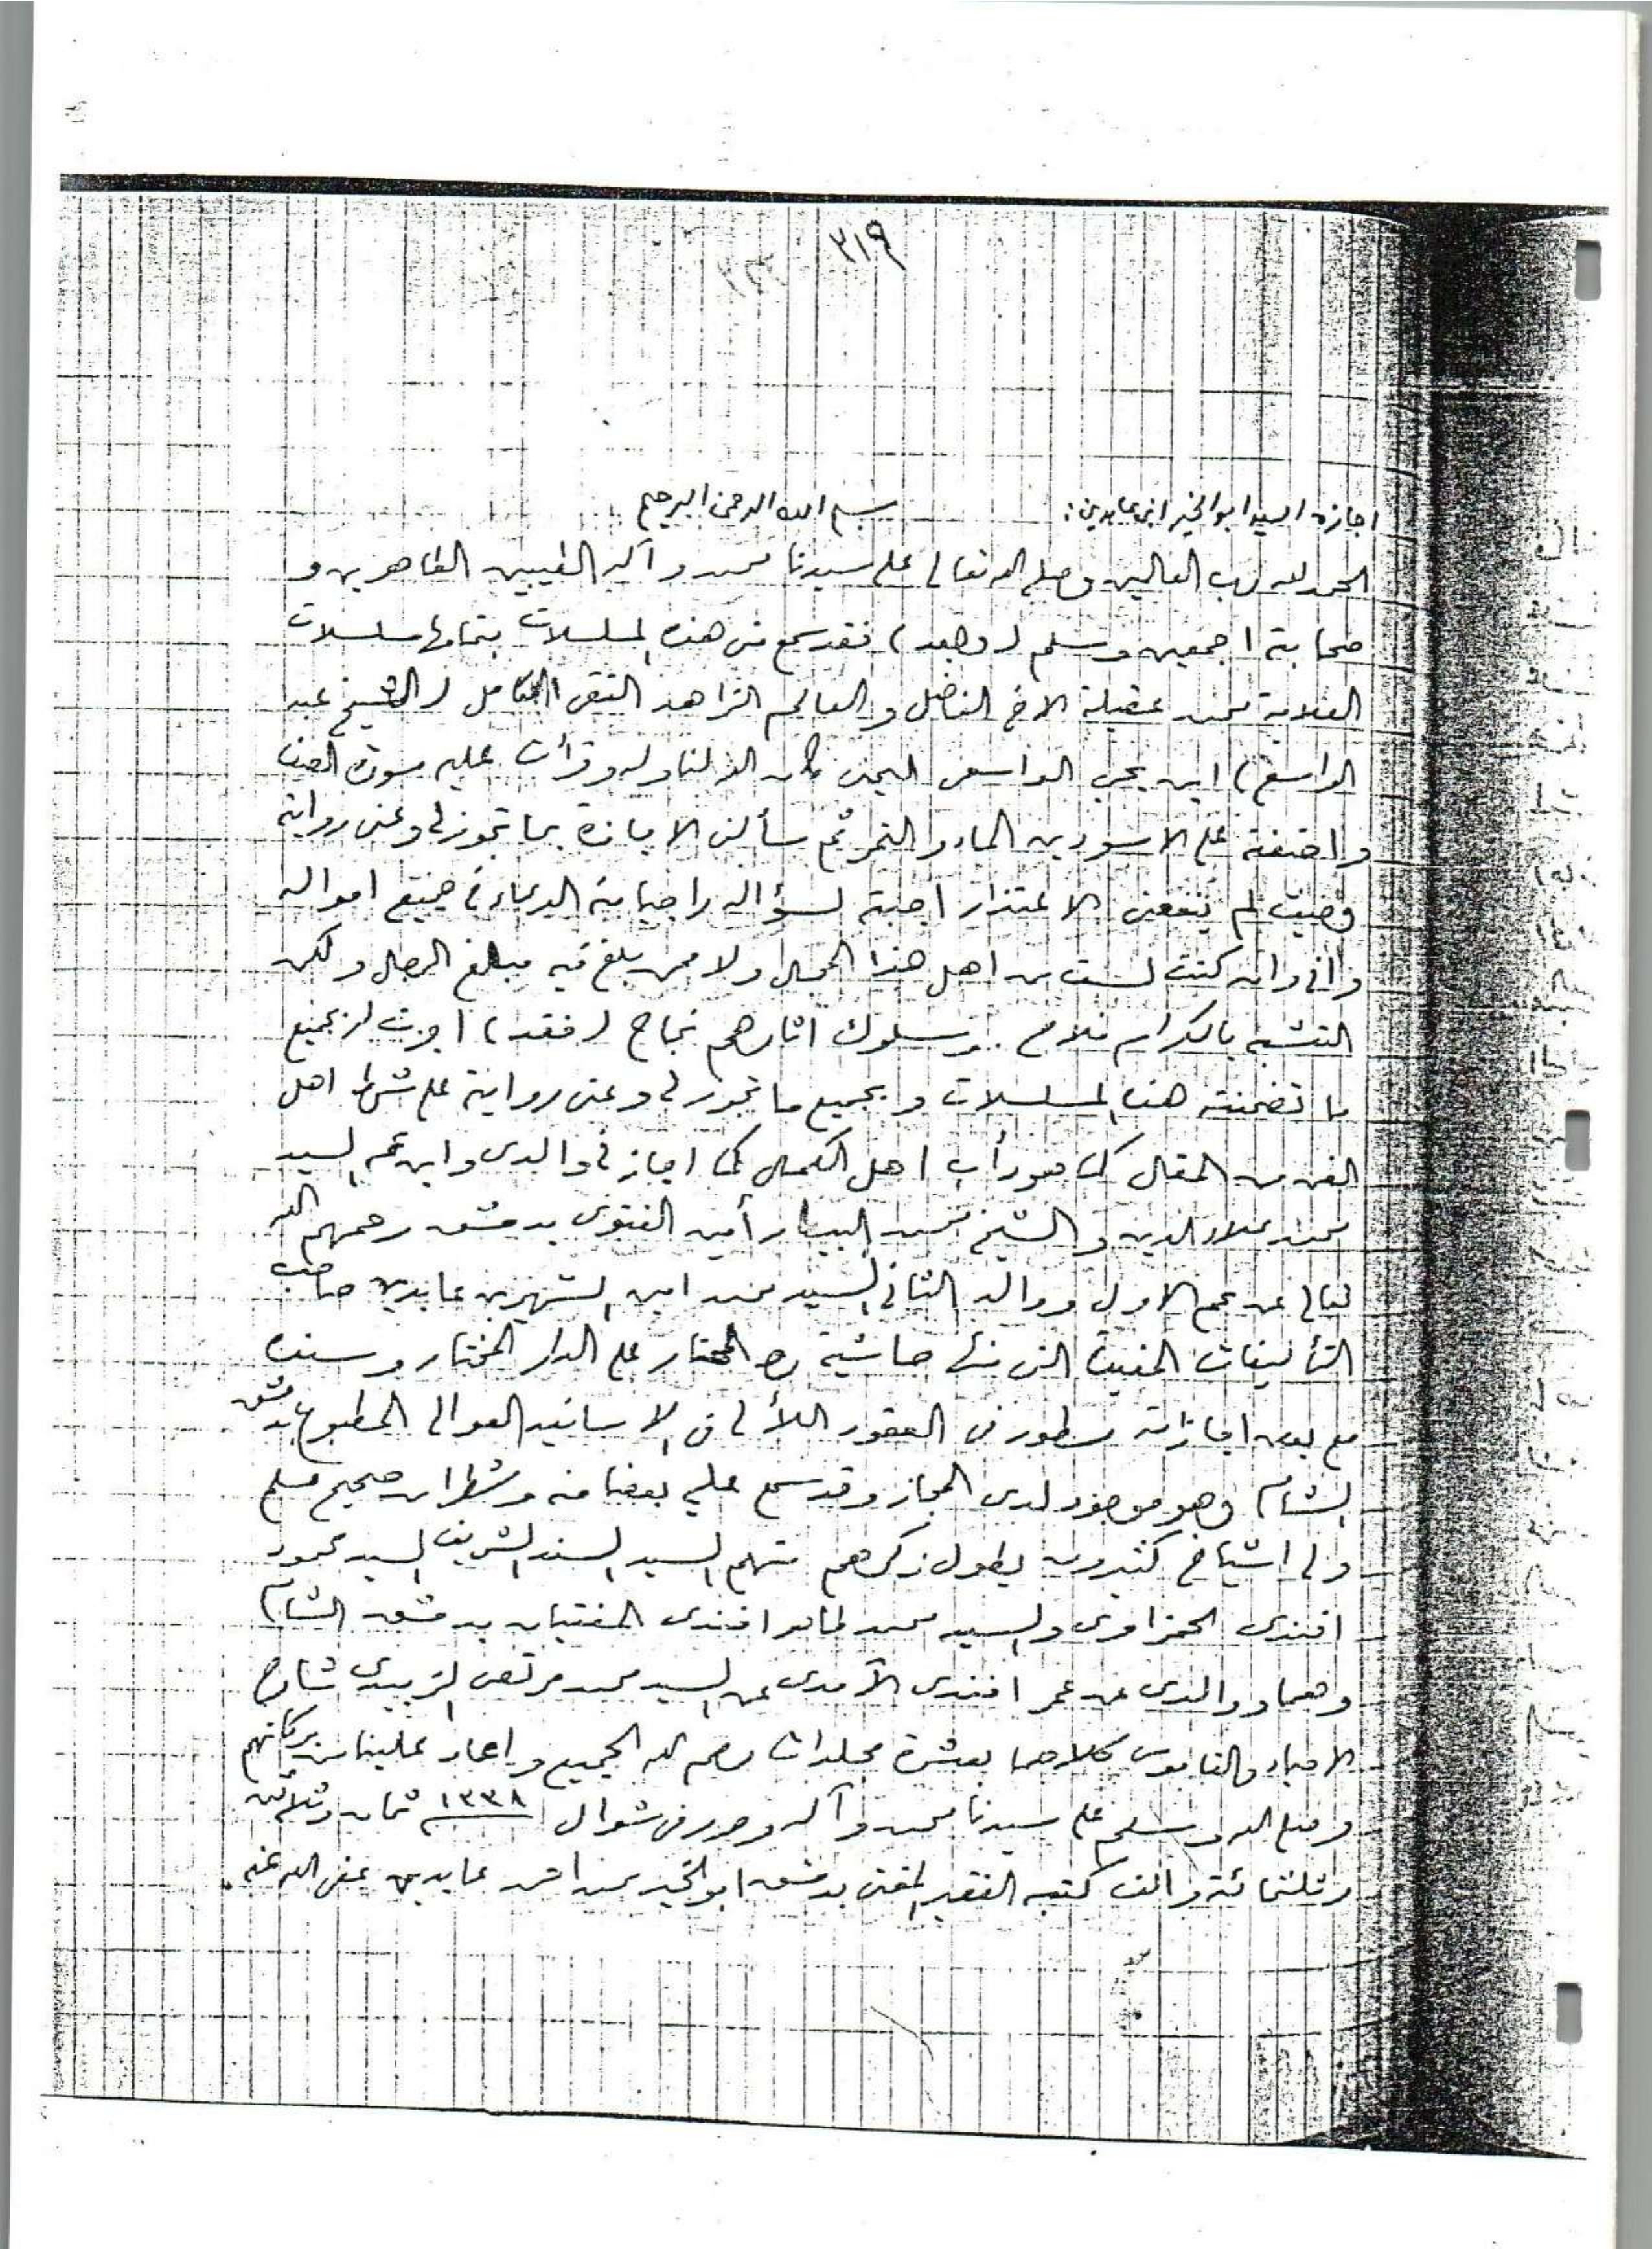 ٣١٩
اجازة السيد ابو الخير ابن عابدين : بسم الله الرحمن الرحيم
الحمد لله رب العالمين وصلى الله تعالى على سيدنا محمد وآله الطيبين الطاهرين و
صحابته اجمعين وسلم (وبعد) فقد سمع مني هذه المسلسلات بتمامها مسلسلات
العلامة محمد عقيلة الاخ الفاضل والعالم الزاهد التقي الكامل (الشيخ عبد
الواسع) ابن يحيى الواسعي اليمني كان الله لنا وله وقرأت عليه سورة الصف
واضفته على الاسودين الماء والتمر ثم سألني الاجازة بما تجوز لي وعني روايته
وحيث لم ينفعني الاعتذار اجبته لسؤاله راجيا منه الدعاء في جميع احواله
واني وان كنت لست من اهل هذا المجال ولا ممن بلغ فيه مبلغ الرجال ولكن
التشبه بالكرام فلاح وسلوك اثارهم نجاح (فقد) اجزت له بجميع
ما تضمنته هذه المسلسلات وبجميع ما تجوز لي وعني روايته على شرط اهل
الفن من المقال كما هو دأب اهل الكمال كما اجازني والدي وابن عمه السيد
محمد علاء الدين والشيخ محمد البيطار أمين الفتوى بدمشق رحمهم الله
تعالى عن عم الاول ووالد الثاني السيد محمد امين الشهير بن عابدين صاحب
التأليفات المفيدة التي منها حاشية رد المحتار على الدار المختار وسنده
مع بعض اجازاته مسطور في العقود اللألي في الاسانيد العوالي المطبوع بدمشق
الشام وهو موجود لدى المجاز وقد سمع علي بعضا منه وشطرا من صحيح مسلم
ولي اشياخ كثيرون يطول ذكرهم منهم السيد السند الشريف السيد محمود
افندي الحمزاوي والسيد محمد طاهر افندي المفتيان بدمشق الشام
وهما ووالدي عن عمر افندي الآمدي عن السيد محمد مرتضى الزبيدي شارح
الاحياء والقاموس كلاهما بعشرة مجلدات رحم الله الجميع واعاد علينا من بركاتهم
وصلى الله وسلم على سيدنا محمد وآله وحرر في شوال ١٣٣٨ ثمان وثلاثين
وثلثمائة والف كتبه الفقير المفتي بدمشق ابو الخير محمد احمد عابدين عفي الله عنه .